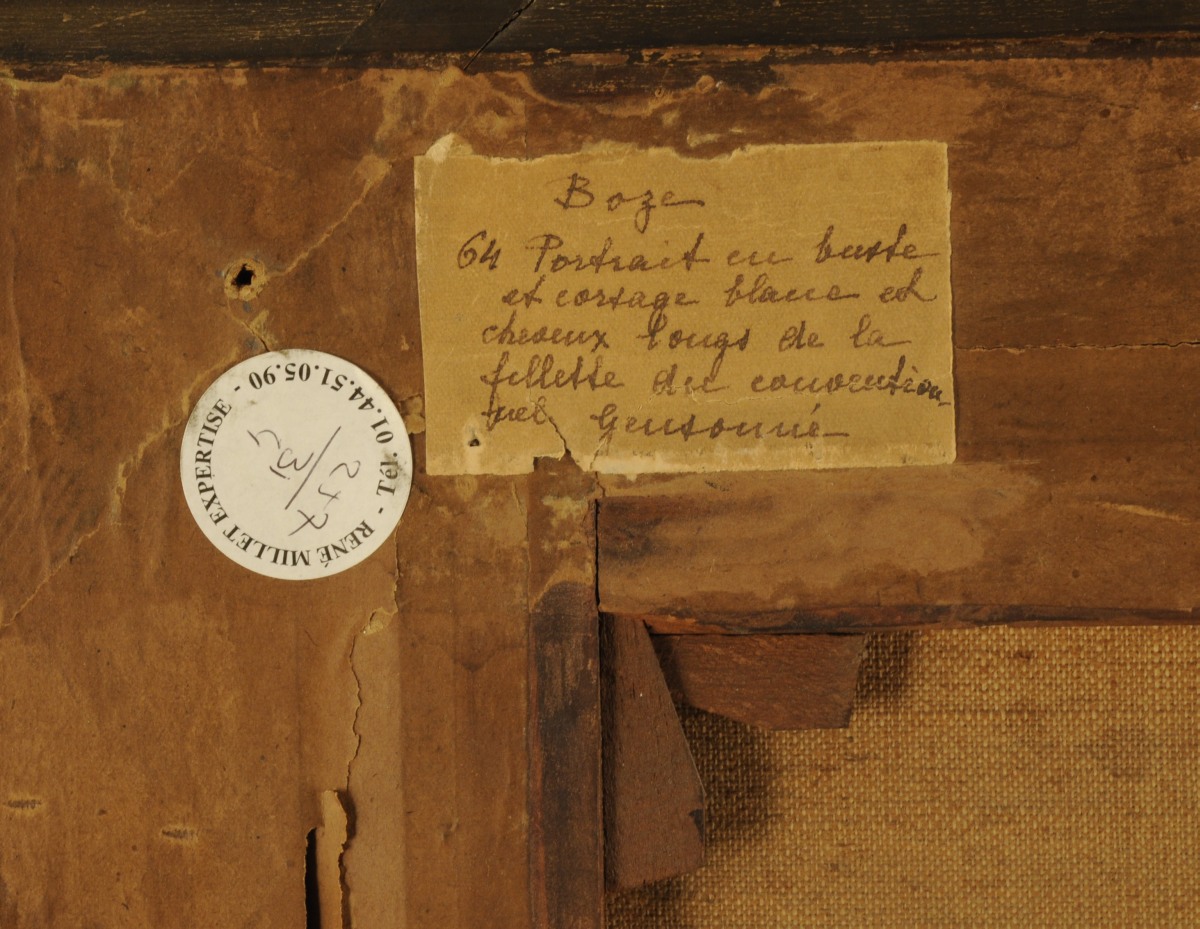 Boze
64 Portrait en buste
et corsage blanc et
cheveux longs de la
fillette du convention
nel Gensonné
RENÉ MILLET EXPERTISE - Tél. 01.44.51.05.90 -
247